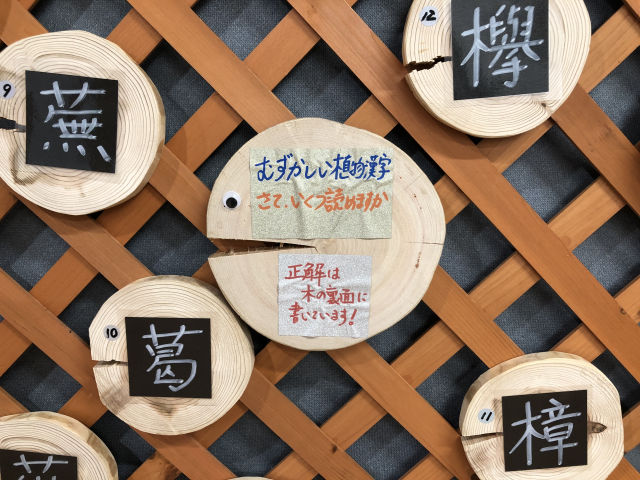 12
欅
9
蕪
むずかしい植物漢字
さて、いくつ読めますか
正解は
木の裏面に
書いています!
10
葛
11
樟